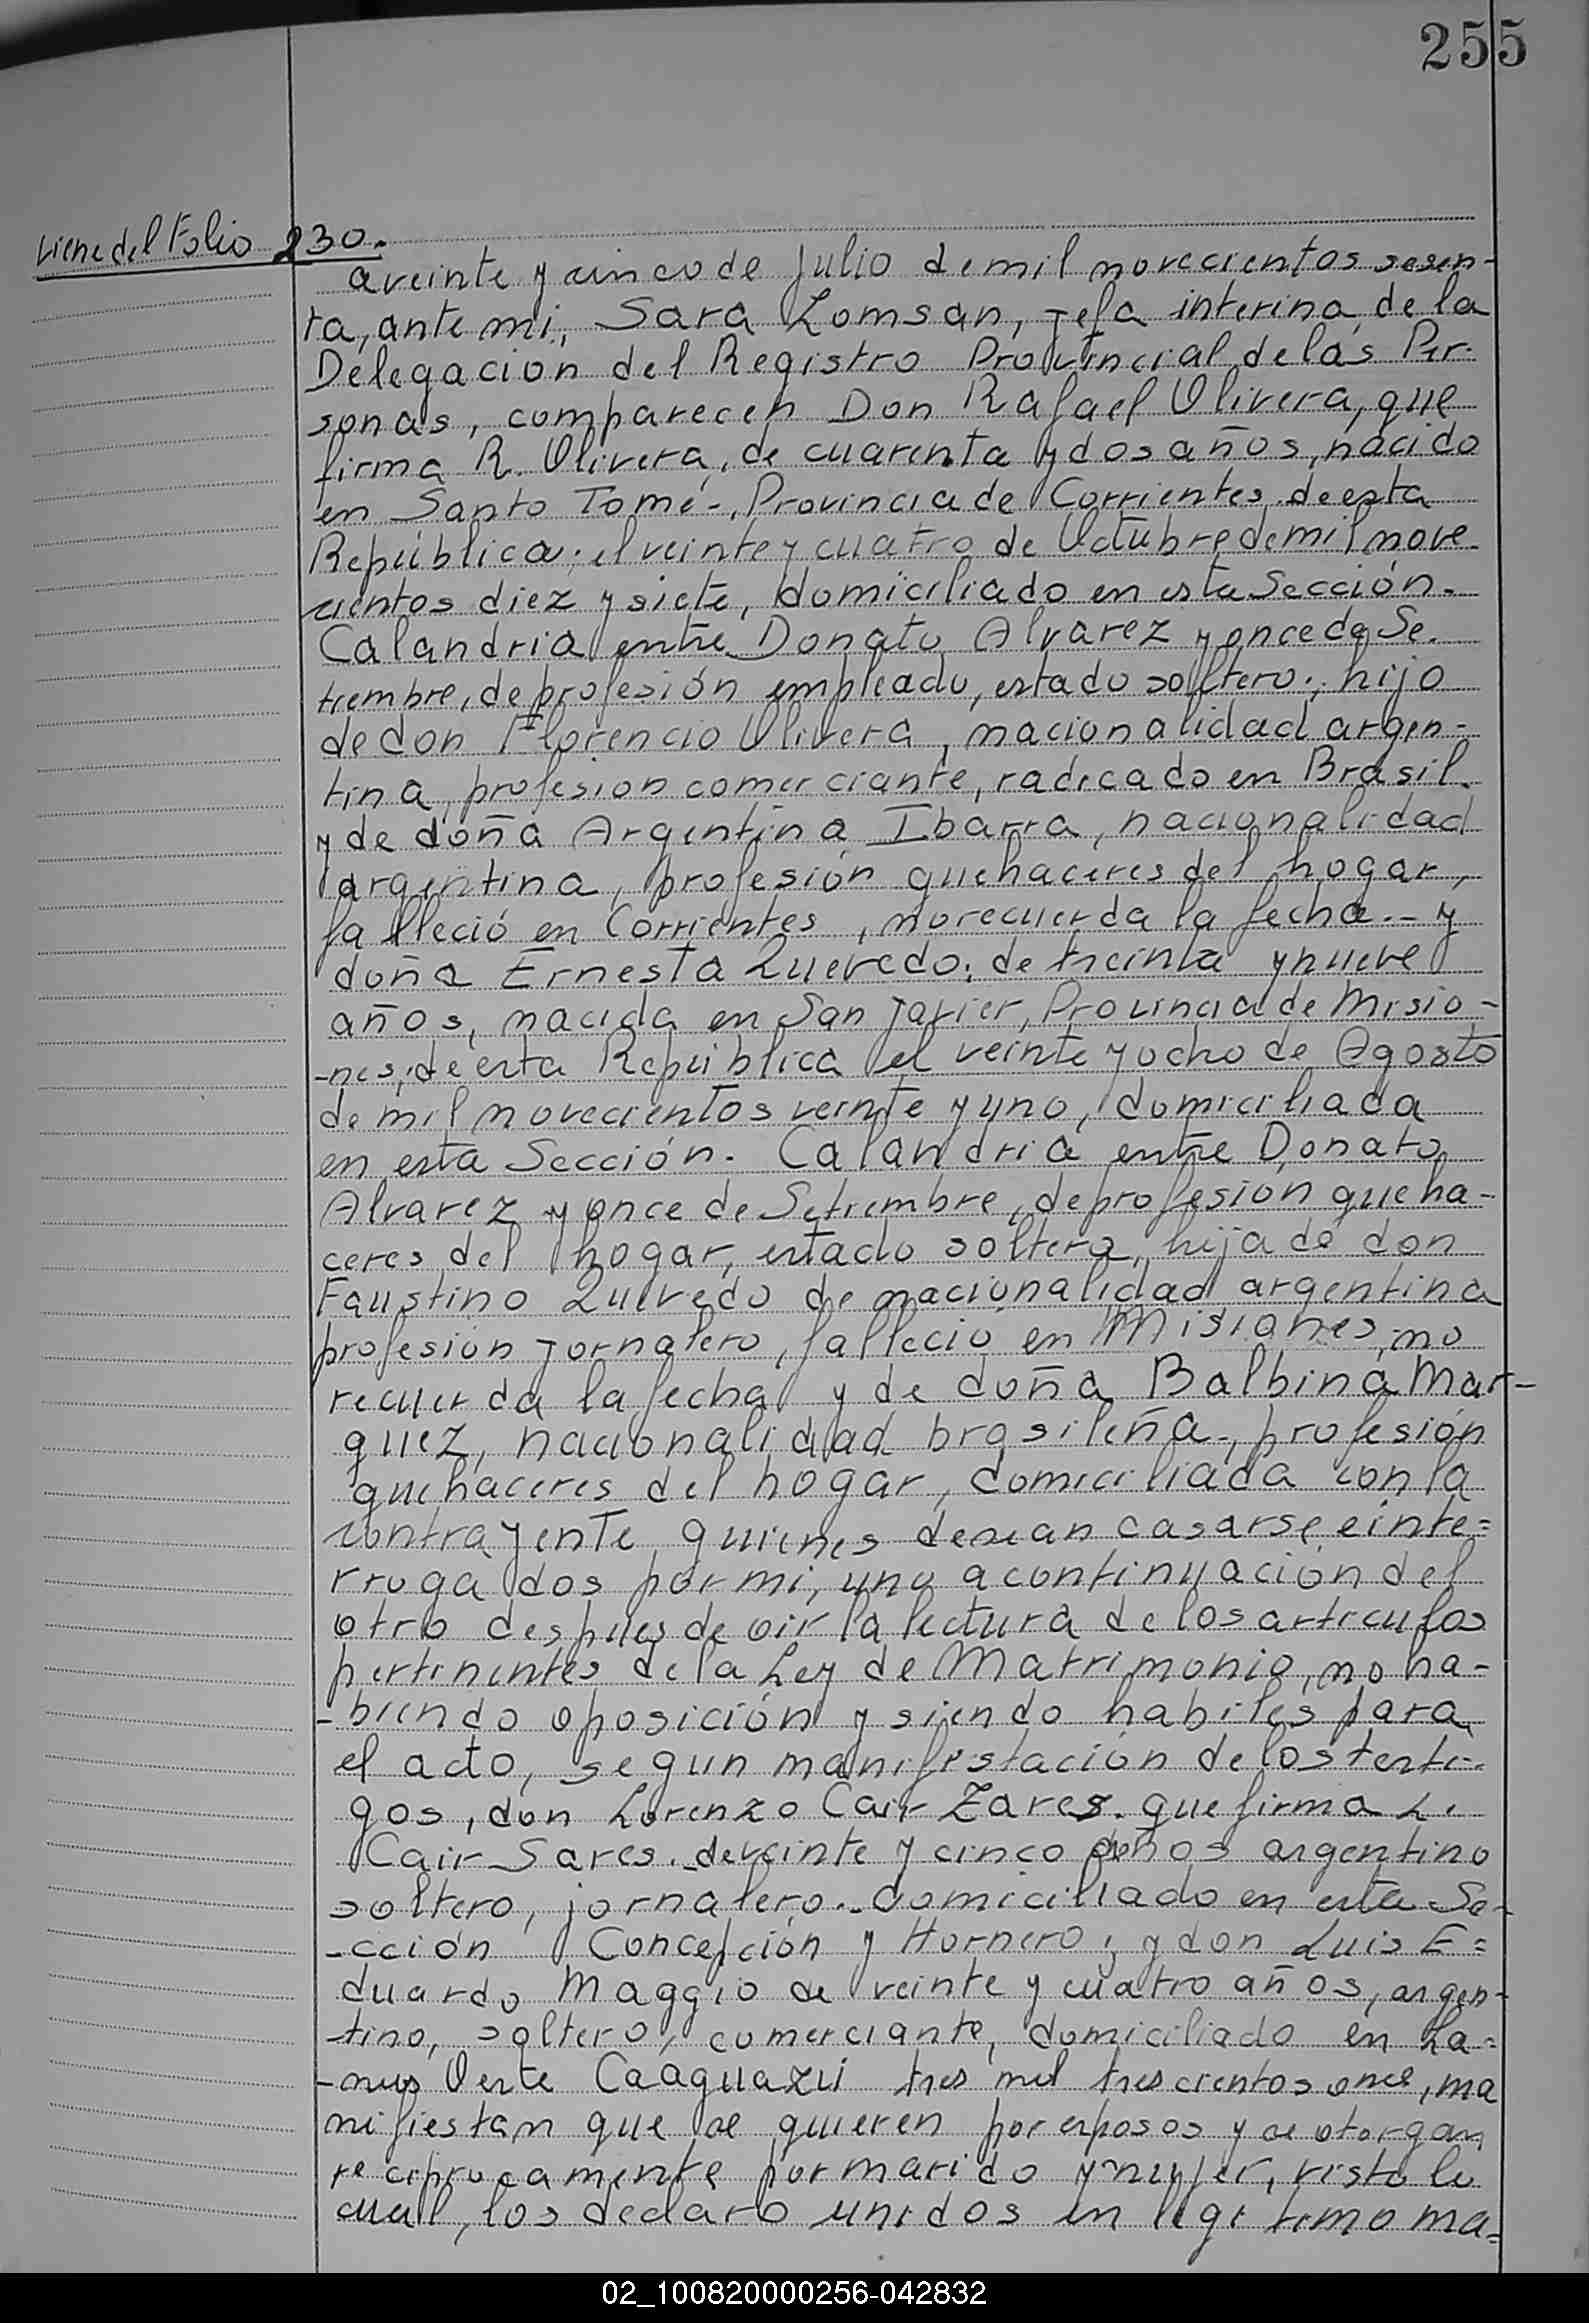 255
viene del Folio 230.
a veinte y cinco de Julio de mil novecientos sesen-
ta, ante mi, Sara Lomsan, Jefa interina de la
Delegación del Registro Provincial de las Per-
sonas, comparecen Don Rafael Olivera, que
firma R. Olivera, de cuarenta y dos años, nacido
en Santo Tomé-, Provincia de Corrientes, de esta
República; el veinte y cuatro de Octubre de mil nove-
cientos diez y siete, domiciliado en esta Sección.
Calandria entre Donato Alvarez y once de Se-
tiembre, de profesión empleado, estado soltero; hijo
de don Florencio Olivera, nacionalidad argen-
tina, profesión comerciante, radicado en Brasil.
y de doña Argentina Ibarra, nacionalidad
argentina, profesión quehaceres del hogar,
falleció en Corrientes, no recuerda la fecha.- y
doña Ernesta Quevedo; de treinta y nueve
años, nacida en San Javier, Provincia de Misio-
-nes, de esta República el veinte y ocho de Agosto
de mil novecientos veinte y uno, domiciliada
en esta Sección. Calandria entre Donato
Alvarez y once de Setiembre, de profesión queha-
ceres del hogar, estado soltera, hija de don
Faustino Quevedo de nacionalidad argentina
profesión Jornalero, falleció en Misiones, no
recuerda la fecha y de doña Balbina Mar-
quez, nacionalidad brasileña-, profesión
quehaceres del hogar, domiciliada con la
contrayente, quienes desean casarse e inte=
rrogados por mi, uno a continuación del
otro después de oir la lectura de los artículos
pertinentes de la Ley de Matrimonio, no ha-
-biendo oposición y siendo habiles para
el acto, segun manifestación de los testi-
gos, don Lorenzo Cair Zares. que firma L.
Cair Sares. de veinte y cinco años argentino
soltero, jornalero.- domiciliado en esta Se-
-cción Concepción y Hornero; y don Luis E=
duardo Maggio de veinte y cuatro años, argen-
-tino, soltero, comerciante, domiciliado en La=
-nus Oeste Caaguazú tres mil trescientos once, ma
nifiestan que se quieren por esposos y se otorgan
reciprocamente por marido y mujer, visto lo
cual, los declaro unidos en legitimo ma=
02_100820000256-042832